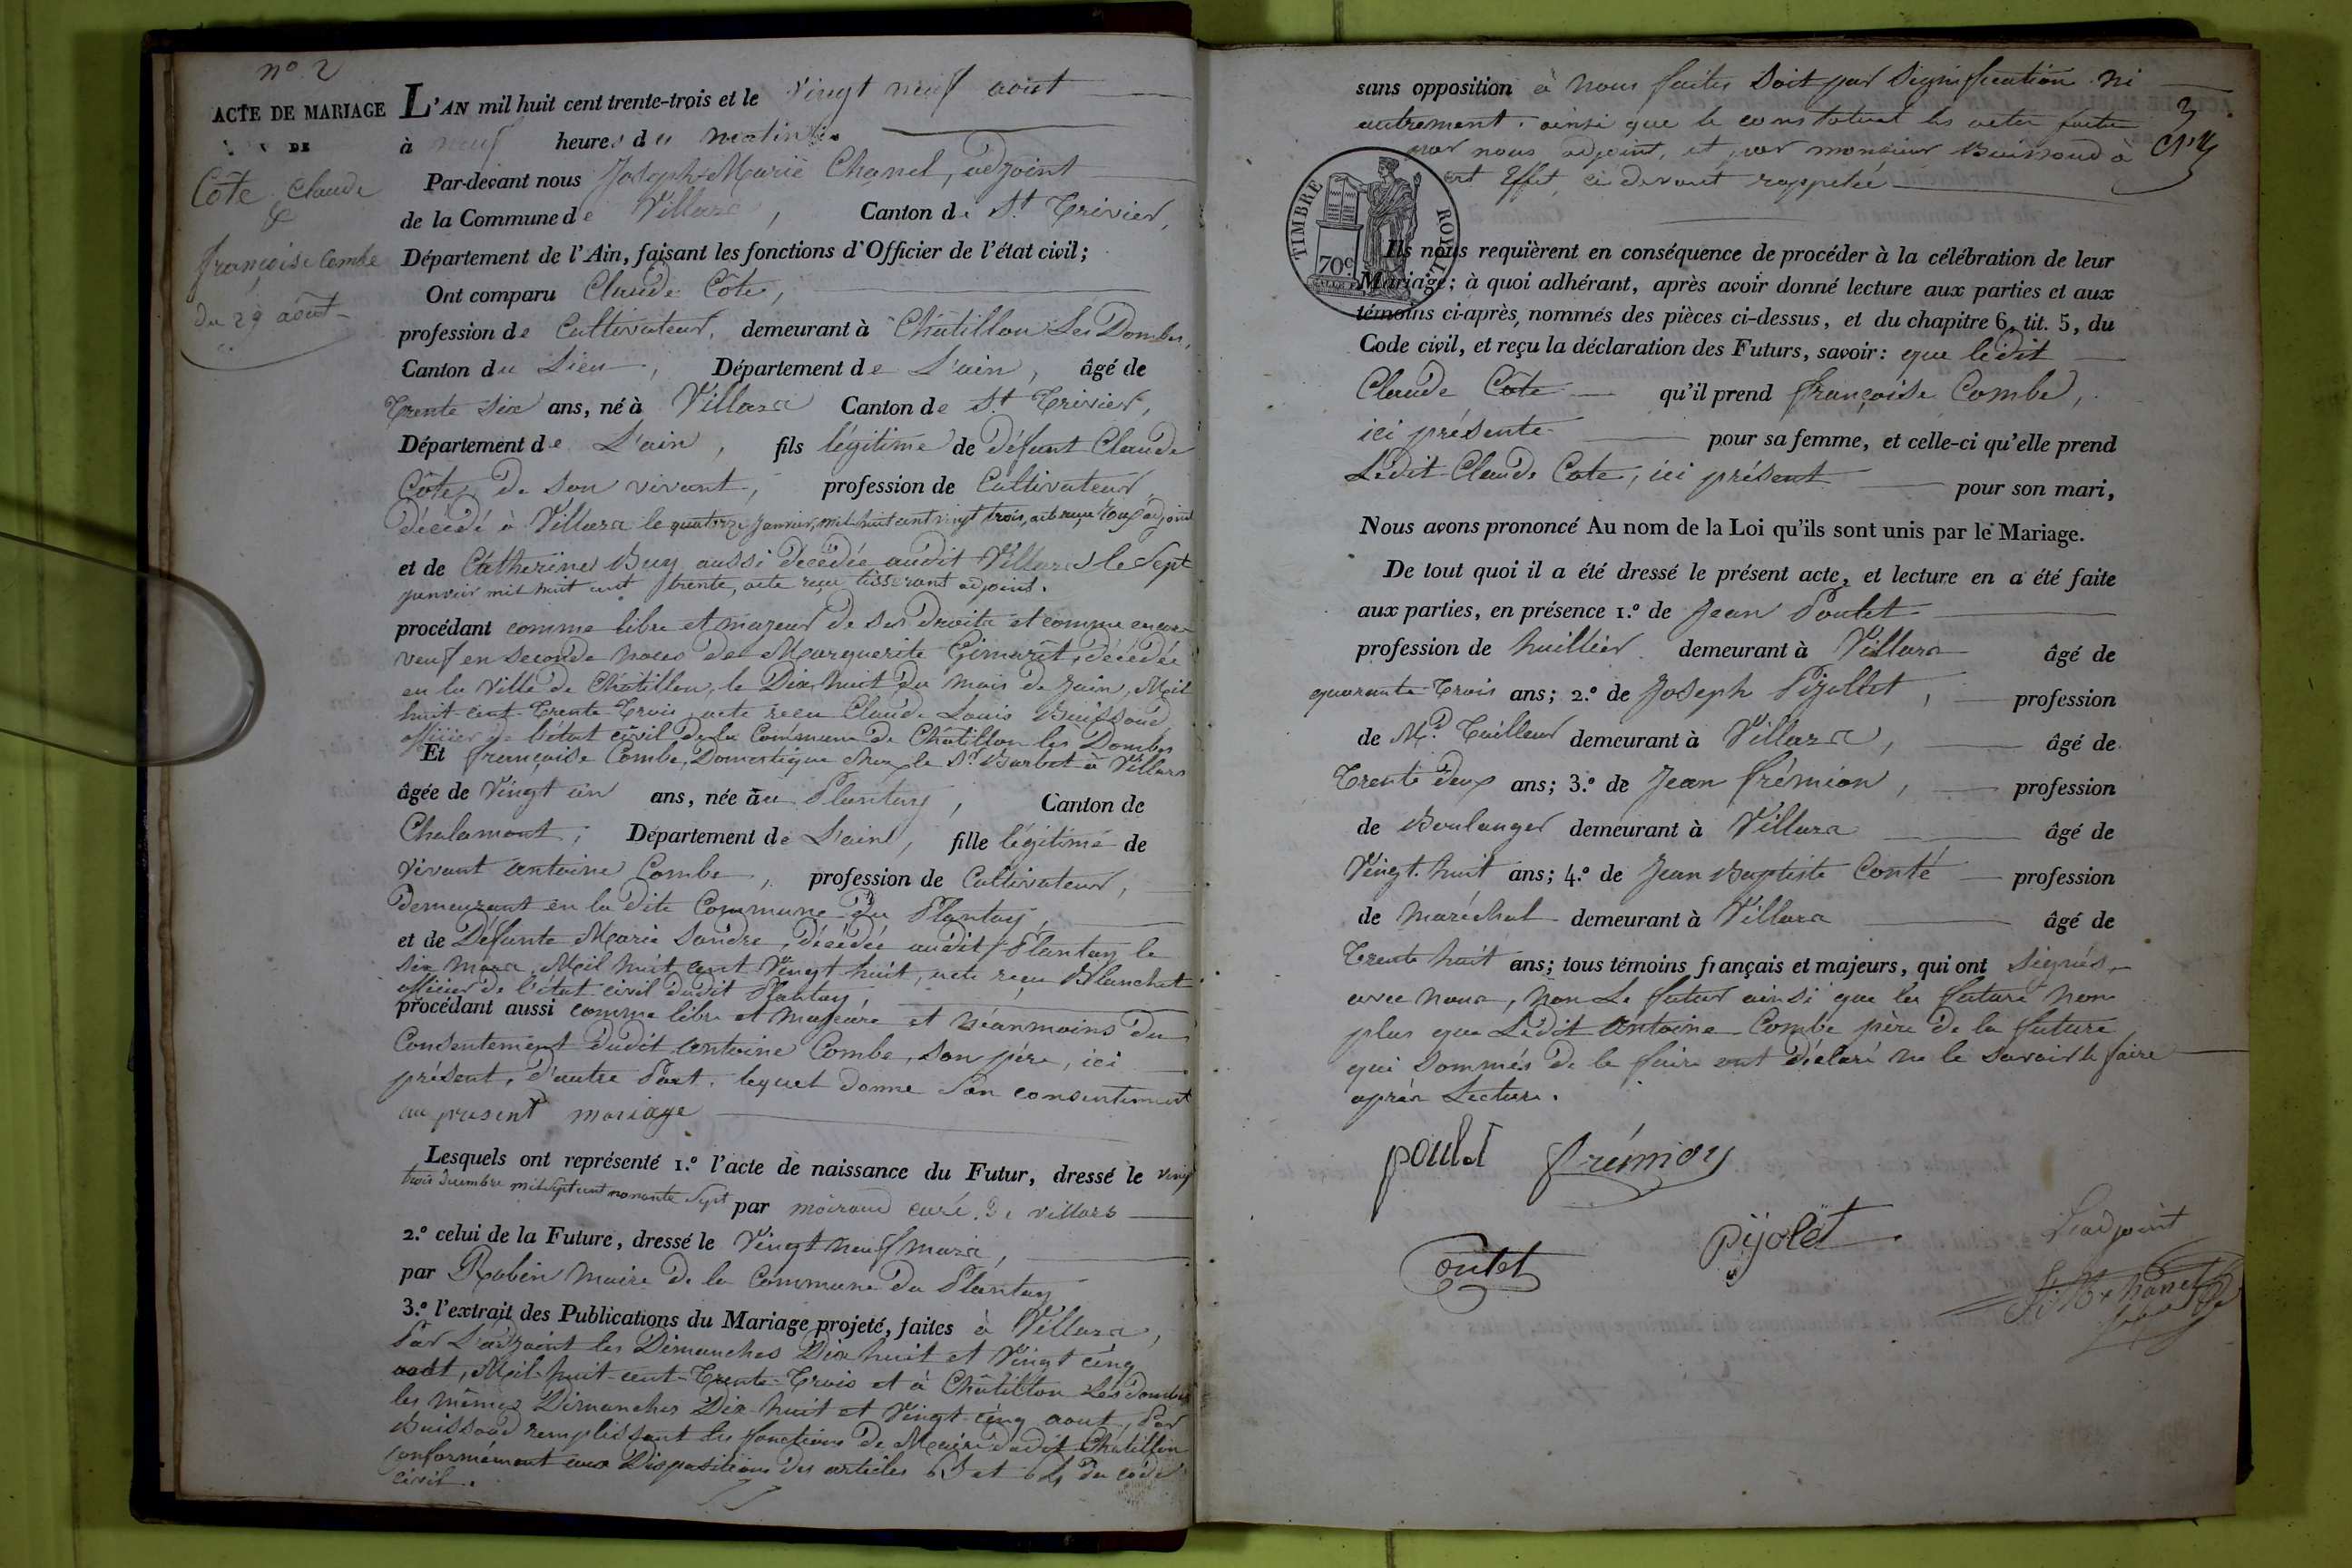 n° 2
ACTE DE MARIAGE
DE
Côte Claude
&
françoise Combe
du 29 août
L'AN mil huit cent trente-trois et le vingt neuf aout
à neuf heures du matin
Par-devant nous Joseph-Marie Chanel, adjoint
de la Commune de Villars, Canton de St. Trivier,
Département de l'Ain, faisant les fonctions d'Officier de l'état civil;
Ont comparu Claude Côte,
profession de Cultivateur, demeurant à Châtillon Les Dombes,
Canton du Lieu, Département de L'ain, âgé de
Trente Six ans, né à Villars Canton de St. Trivier,
Département de L'ain, fils légitime de Défunt Claude
Côte, De Son vivant, profession de Cultivateur
décédé à Villars le quatorze janvier, mil huit cent vingt trois, acte reçu Roux adjoint
et de Catherine Buy aussi Décédée audit Villars le Sept
janvier mil huit cent trente, acte reçu tisserant adjoint.
procédant comme libre et majeur de Ses Droits et comme encore
veuf en Seconde Noces de Marguerite Gimarêt, décédée
en la Ville de Châtillon, le Dix huit du mois de Juin, Mil
huit-cent-Trente-Trois, acte reçu Claude Louis Buissoud
officier de l'état civil de la Commune de Châtillon les Dombes
Et françoise Combe, Domestique chez le Sr. Barbet à Villars
âgée de Vingt un ans, née au Plantay, Canton de
Chalamont, Département de L'ain, fille légitime de
vivant Antoine Combe, profession de Cultivateur,
Demeurant en la dite Commune du Plantay,
et de Défunte Marie Sandre, décédée audit Plantay le
six mars, Mil huit cent Vingt huit, acte reçu Blanchet
officier de l'état civil dudit Plantay,
procédant aussi comme libre et majeure et Néanmoins du
Consentement dudit Antoine Combe, son père, ici
présent, d'autre Part, lequel donne Son consentement
au present mariage
Lesquels ont représenté 1.° l'acte de naissance du Futur, dressé le vingt
trois Decembre mil sept cent nonante sept par moiroud curé de villars
2.° celui de la Future, dressé le Vingt Neuf mars,
par Robin Maire de la Commune du Plantay
3.° l'extrait des Publications du Mariage projeté, faites à Villars,
Par L'adjoint les Dimanches Dix huit et Vingt cinq
aout, Mil-huit-cent-Trente-Trois et à Châtillon Les dombes
les mêmes Dimanches Dix-huit et Vingt-cinq aout, Par
Buissoud remplissant les fonctions de Maire dudit Châtillon
Conformément aux Dispositions des articles 63 et 64 du code
civil.
sans opposition à Nous faites Soit par Signification ni
autrement, ainsi que le constatent les actes faites
par nous adjoint, et par monsieur Buissoud à
cet Effet, ci devant rappelée
TIMBRE ROYAL
70c
Ils nous requièrent en conséquence de procéder à la célébration de leur
Mariage; à quoi adhérant, après avoir donné lecture aux parties et aux
témoins ci-après nommés des pièces ci-dessus, et du chapitre 6, tit. 5, du
Code civil, et reçu la déclaration des Futurs, savoir: que ledit
Claude Côte qu'il prend françoise Combe,
ici présente pour sa femme, et celle-ci qu'elle prend
Ledit Claude Cote, ici présent pour son mari,
Nous avons prononcé Au nom de la Loi qu'ils sont unis par le Mariage.
De tout quoi il a été dressé le présent acte, et lecture en a été faite
aux parties, en présence 1.° de Jean Poulet
profession de huillier demeurant à Villars âgé de
quarante-Trois ans; 2.° de Joseph Pijollet, profession
de Md. Tailleur demeurant à Villars, âgé de
Trente deux ans; 3.° de Jean frémion, profession
de Boulanger demeurant à Villars âgé de
Vingt-huit ans; 4.° de Jean Baptiste Conté profession
de maréchal demeurant à Villars âgé de
Trente huit ans; tous témoins français et majeurs, qui ont Signés
avec Nous, Non Le futur ainsi que la future Non
plus que Ledit Antoine Combe père de la future
qui Sommés de le faire ont déclaré ne le Savoir le faire
après Lecture.
poulet frémion
Contet pijolet
L'adjoint
J. M. Chanel